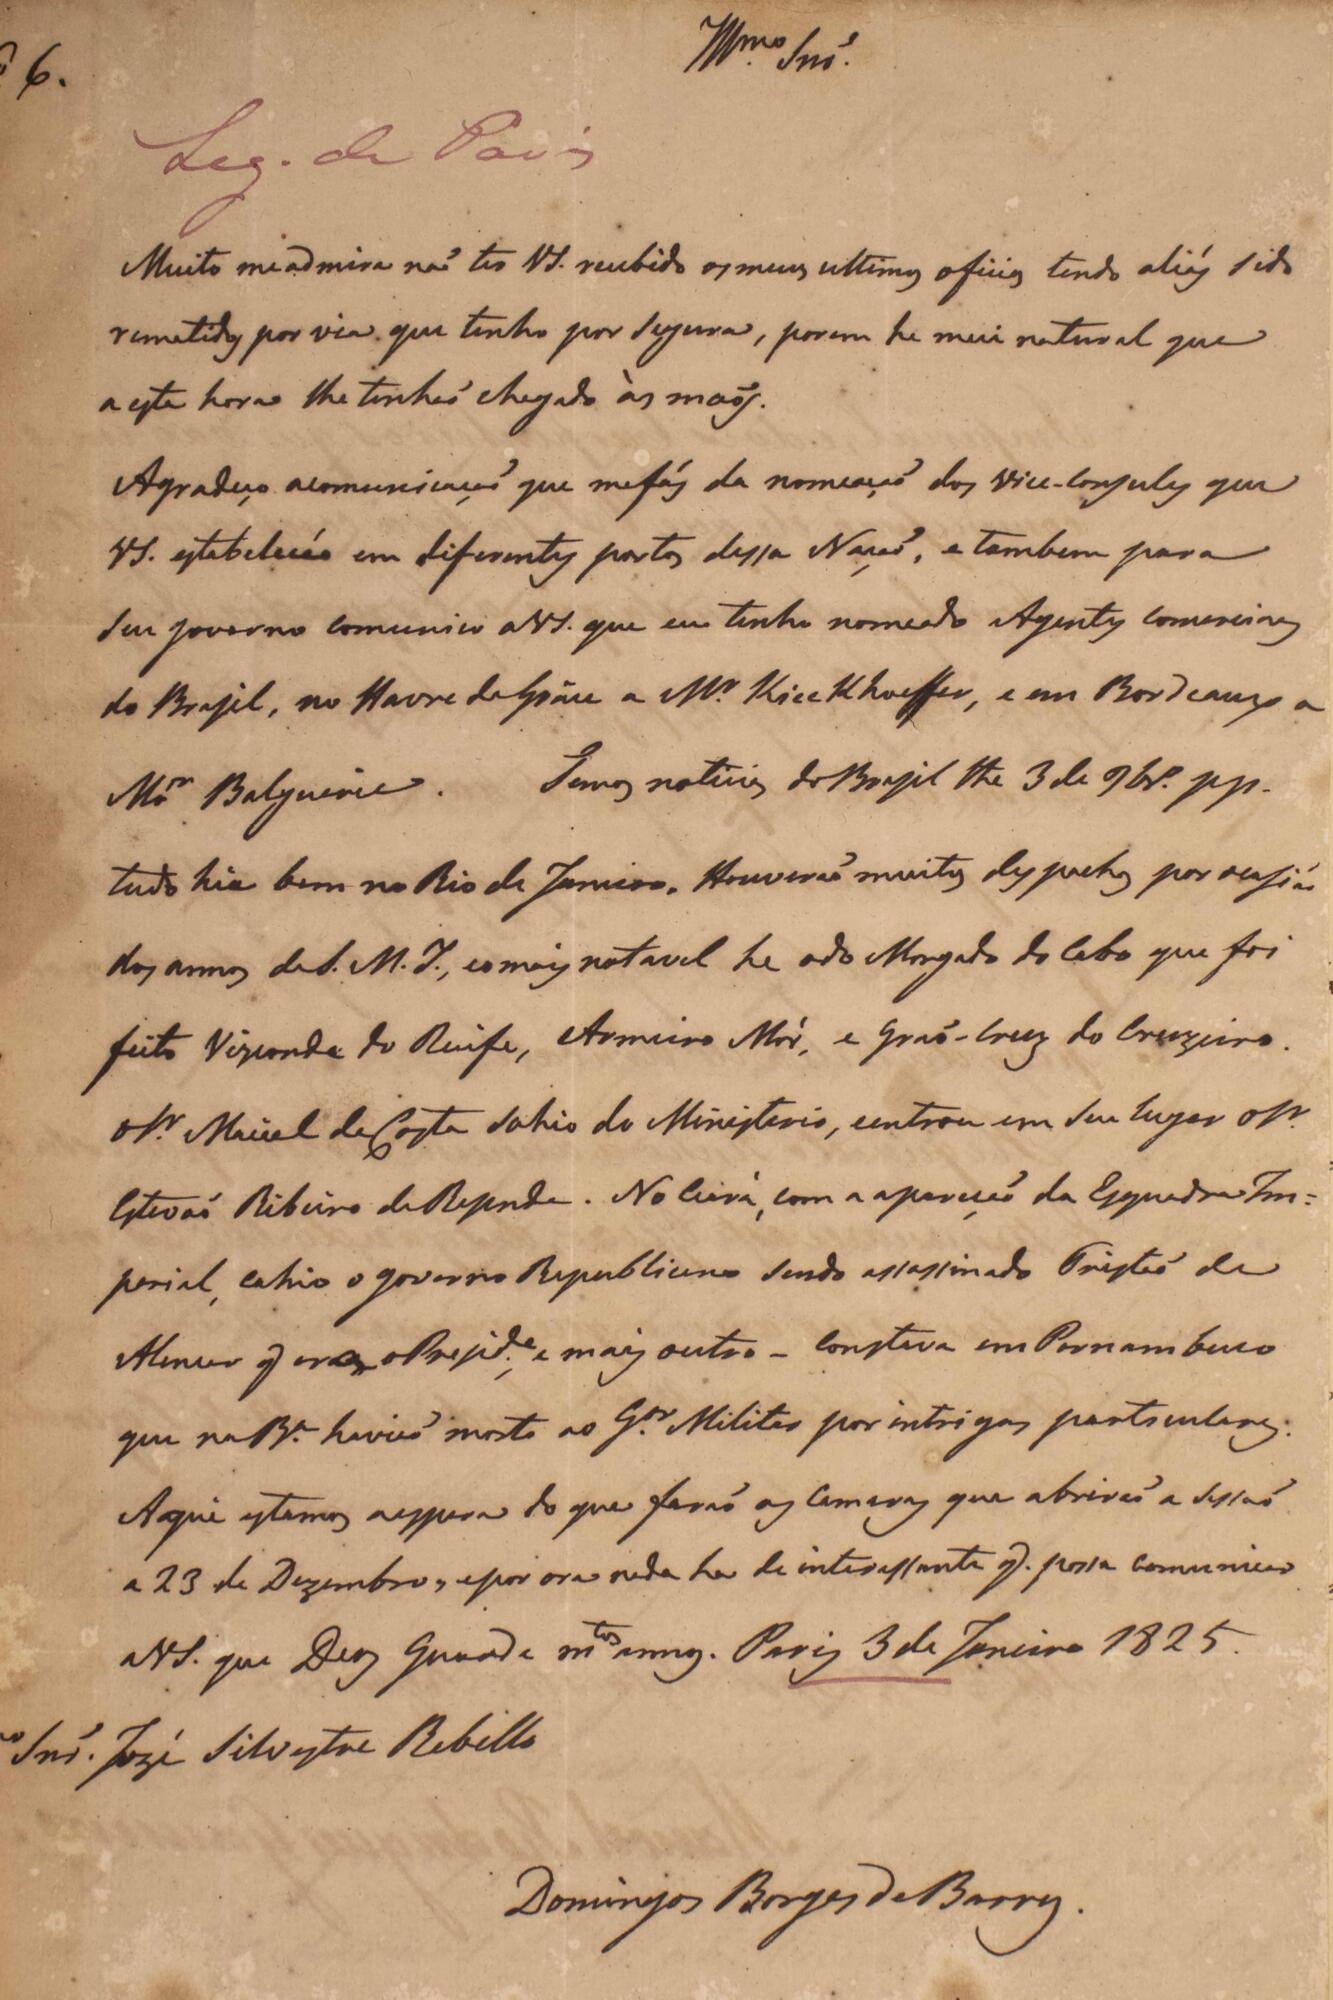 6.
Illmo. Snr.
Leg. de Paris
Muito me admira naõ ter VS. recebido os meus ultimos oficios tendo aliás sido
remetidos por via que tenho por segura, porem he mui natural que
a esta hora lhe tenhaõ chegado às maõs.
Agradeço a comunicaçaõ que me fás da nomeaçaõ dos Vice-Consules que
VS. estabeleceo em diferentes portos dessa Naçaõ, e tambem para
seu governo comunico a VS. que eu tenho nomeado Agentes comerciaes
do Brasil, no Havre de Grâce a Mr. Kieckhoeffer, e em Bordeaux a
Mor. Balguerie. Temos noticias do Brasil the 3 de 9br.o pp.
tudo hia bem no Rio de Janeiro. Houveraõ muitos despachos por ocasiaõ
dos annos de S. M. I., e o mais notavel he o do Morgado do Cabo que foi
feito Visconde do Recife, Armeiro Mór, e Graõ-Cruz do Cruzeiro.
O Sr. Maciel da Costa sahio do Ministerio, e entrou em seu lugar o Sr.
Estevaõ Ribeiro de Resende. No Ceará, com a apariçaõ da Esquadra Im=
perial, cahio o governo Republicano sendo assassinado Tristaõ de
Alencar q era o Presid.e, e mais outro - Constava em Pernambuco
que na Ba. haviaõ morto ao G.or Militar por intrigas particulares.
Aqui estamos a espera do que faraõ as Camaras que abriraõ a sessaõ
a 23 de Dezembro, e por ora nada ha de interessante q. possa comunicar
a VS. que Deos Guarde m.tos annos. Paris 3 de Janeiro 1825.
Snr. Jozé Silvestre Rebello
Domingos Borges de Barros.